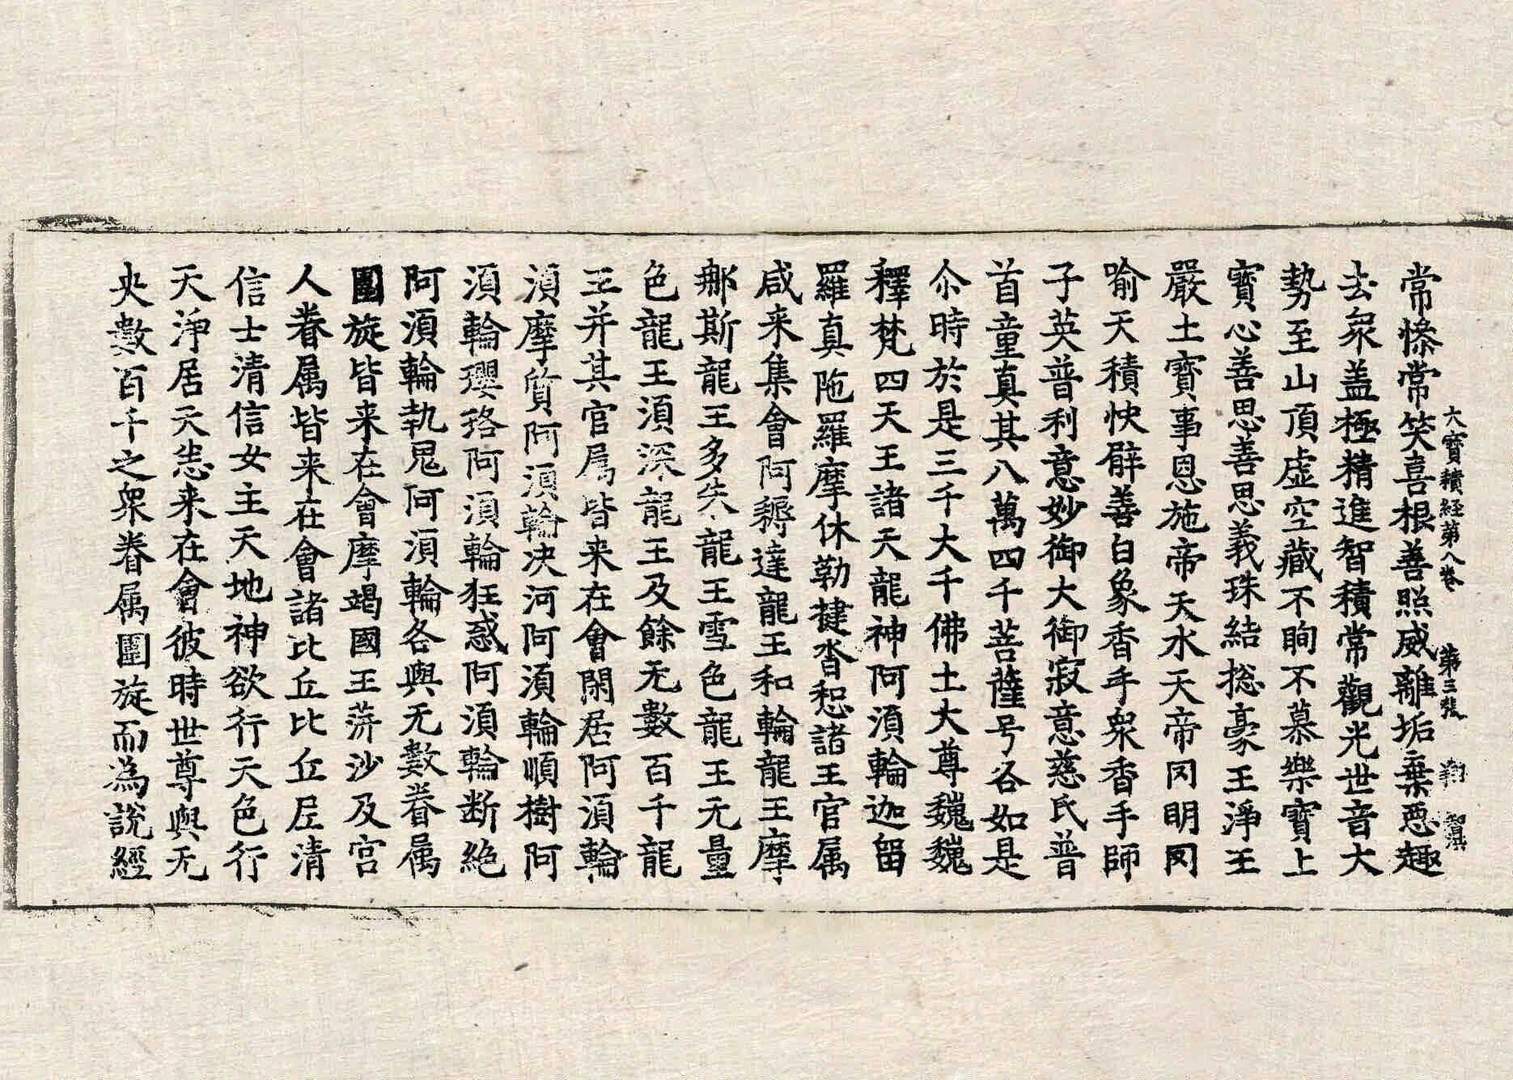 大寶積經第八卷 第三張
常慘常笑喜根善照威離垢棄惡趣
去众盖極精進智積常觀光世音大
勢至山頂虛空藏不眴不慕樂寶上
寶心善思善思義珠結捴豪王淨王
嚴土寶事恩施帝天水天帝冈明冈
喻天積快辟善白象香手众香手師
子英普利意妙御大御寂意慈氏普
首童真其八萬四千菩薩号各如是
尒時於是三千大千佛土大尊魏魏
釋梵四天王諸天龍神阿湏輪迦留
羅真陁羅摩休勒揵沓惒諸王官属
咸来集會阿耨達龍王和輪龍王摩
那斯龍王多失龍王雪色龍王无量
色龍王湏深龍王及餘无數百千龍
王并其官属皆来在會閑居阿湏輪
湏摩質阿湏輪決河阿湏輪順樹阿
湏輪瓔珞阿湏輪狂惑阿湏輪断絶
阿湏輪執鬼阿湏輪各與无數眷属
圍旋皆来在會摩竭國王蓱沙及宫
人眷属皆来在會諸比丘比丘𡰱清
信士清信女主天地神欲行天色行
天淨居天悉来在會彼時世尊與无
央數百千之衆眷属圍旋而為說經